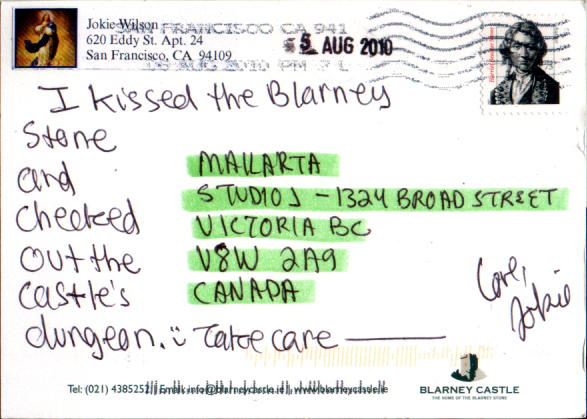 Jokie Wilson
620 Eddy St. Apt. 24
San Francisco, CA 94109
SAN FRANCISCO CA 941
5 AUG 2010
I kissed the Blarney
Stone
and
checked
out the
castle's
dungeon. Ü Take care
MAILARTA
STUDIO J - 1324 BROAD STREET
VICTORIA BC
V8W 2A9
CANADA
Love,
Jokie
Tel: (021) 4385252 | Email: info@blarneycastle.ie | www.blarneycastle.ie
BLARNEY CASTLE
THE HOME OF THE BLARNEY STONE